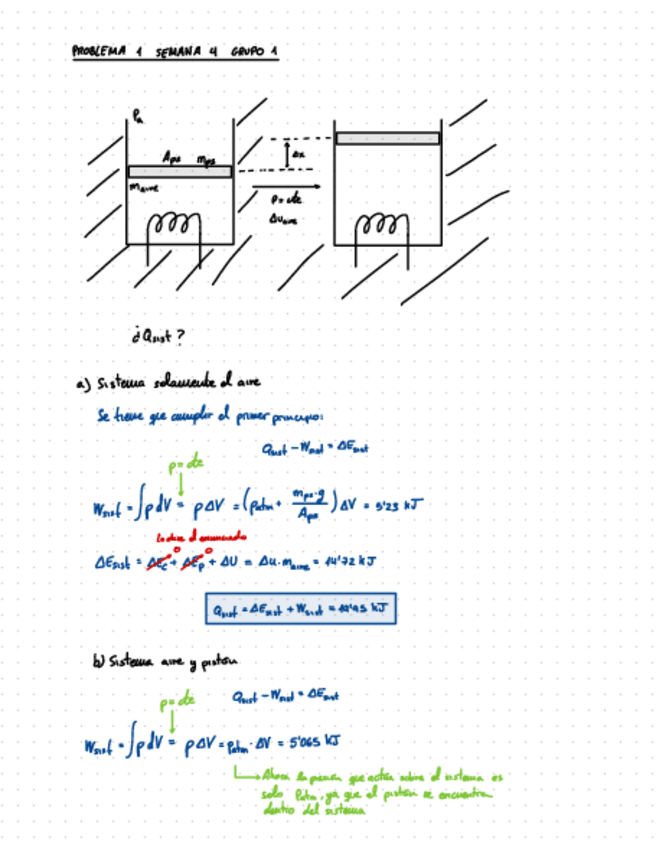 PROBLEMA 1 SEMANA 4 GRUPO 1
Pa
Aps mps
maire
Δx
P = cte
Δuaire
¿Qsist?
a) Sistema solamente el aire
Se tiene que cumplir el primer principio:
Qsist - Wsist = ΔEsist
p = cte
Wsist = ∫p dV = pΔV = (Patm + mps·g / Aps) ΔV = 5'23 kJ
Lo dice el enunciado
ΔEsist = ΔEc + ΔEp + ΔU = Δu·maire = 14'72 kJ
0 0
Qsist = ΔEsist + Wsist = 19'95 kJ
b) Sistema aire y pistón
p = cte
Qsist - Wsist = ΔEsist
Wsist = ∫p dV = pΔV = Patm·ΔV = 5'065 kJ
Ahora la presión que actúa sobre el sistema es
solo Patm, ya que el pistón se encuentra
dentro del sistema